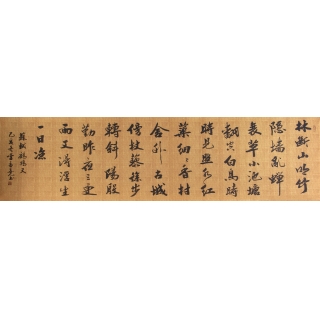 林斷山明竹
隱墻亂蟬
衰草小池塘
翻空白鳥時
時見照水紅
蕖細細香村
舍外古城
傍杖藜徐步
轉斜陽殷
勤昨夜三更
雨又得浮生
一日涼
蘇軾鷓鴣天